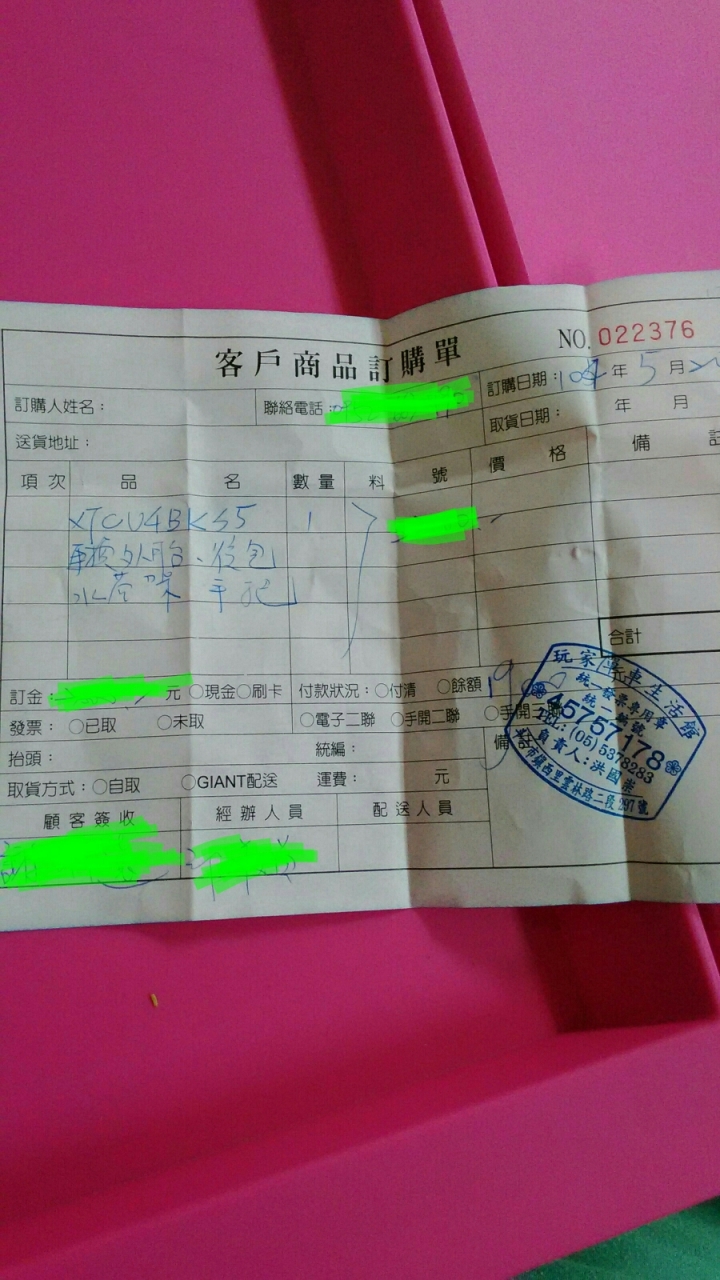 客戶商品訂購單
NO. 022376
訂購人姓名：
聯絡電話：
訂購日期：年5月
取貨日期： 年 月
送貨地址：
項次 品名 數量 料號 價格 備註
XTCU4BKS5 1
後包
水 手把
合計
訂金： 元 ○現金○刷卡 付款狀況：○付清 ○餘額
發票：○已取 ○未取 ○電子二聯 ○手開二聯 ○手開三聯
抬頭： 統編：
取貨方式：○自取 ○GIANT配送 運費： 元
顧客簽收 經辦人員 配送人員
玩家單車生活館
統一發票專用章
統一編號
45757178
TEL：(05)5378283
負責人：洪國崇
市鎮西里雲林路二段297號